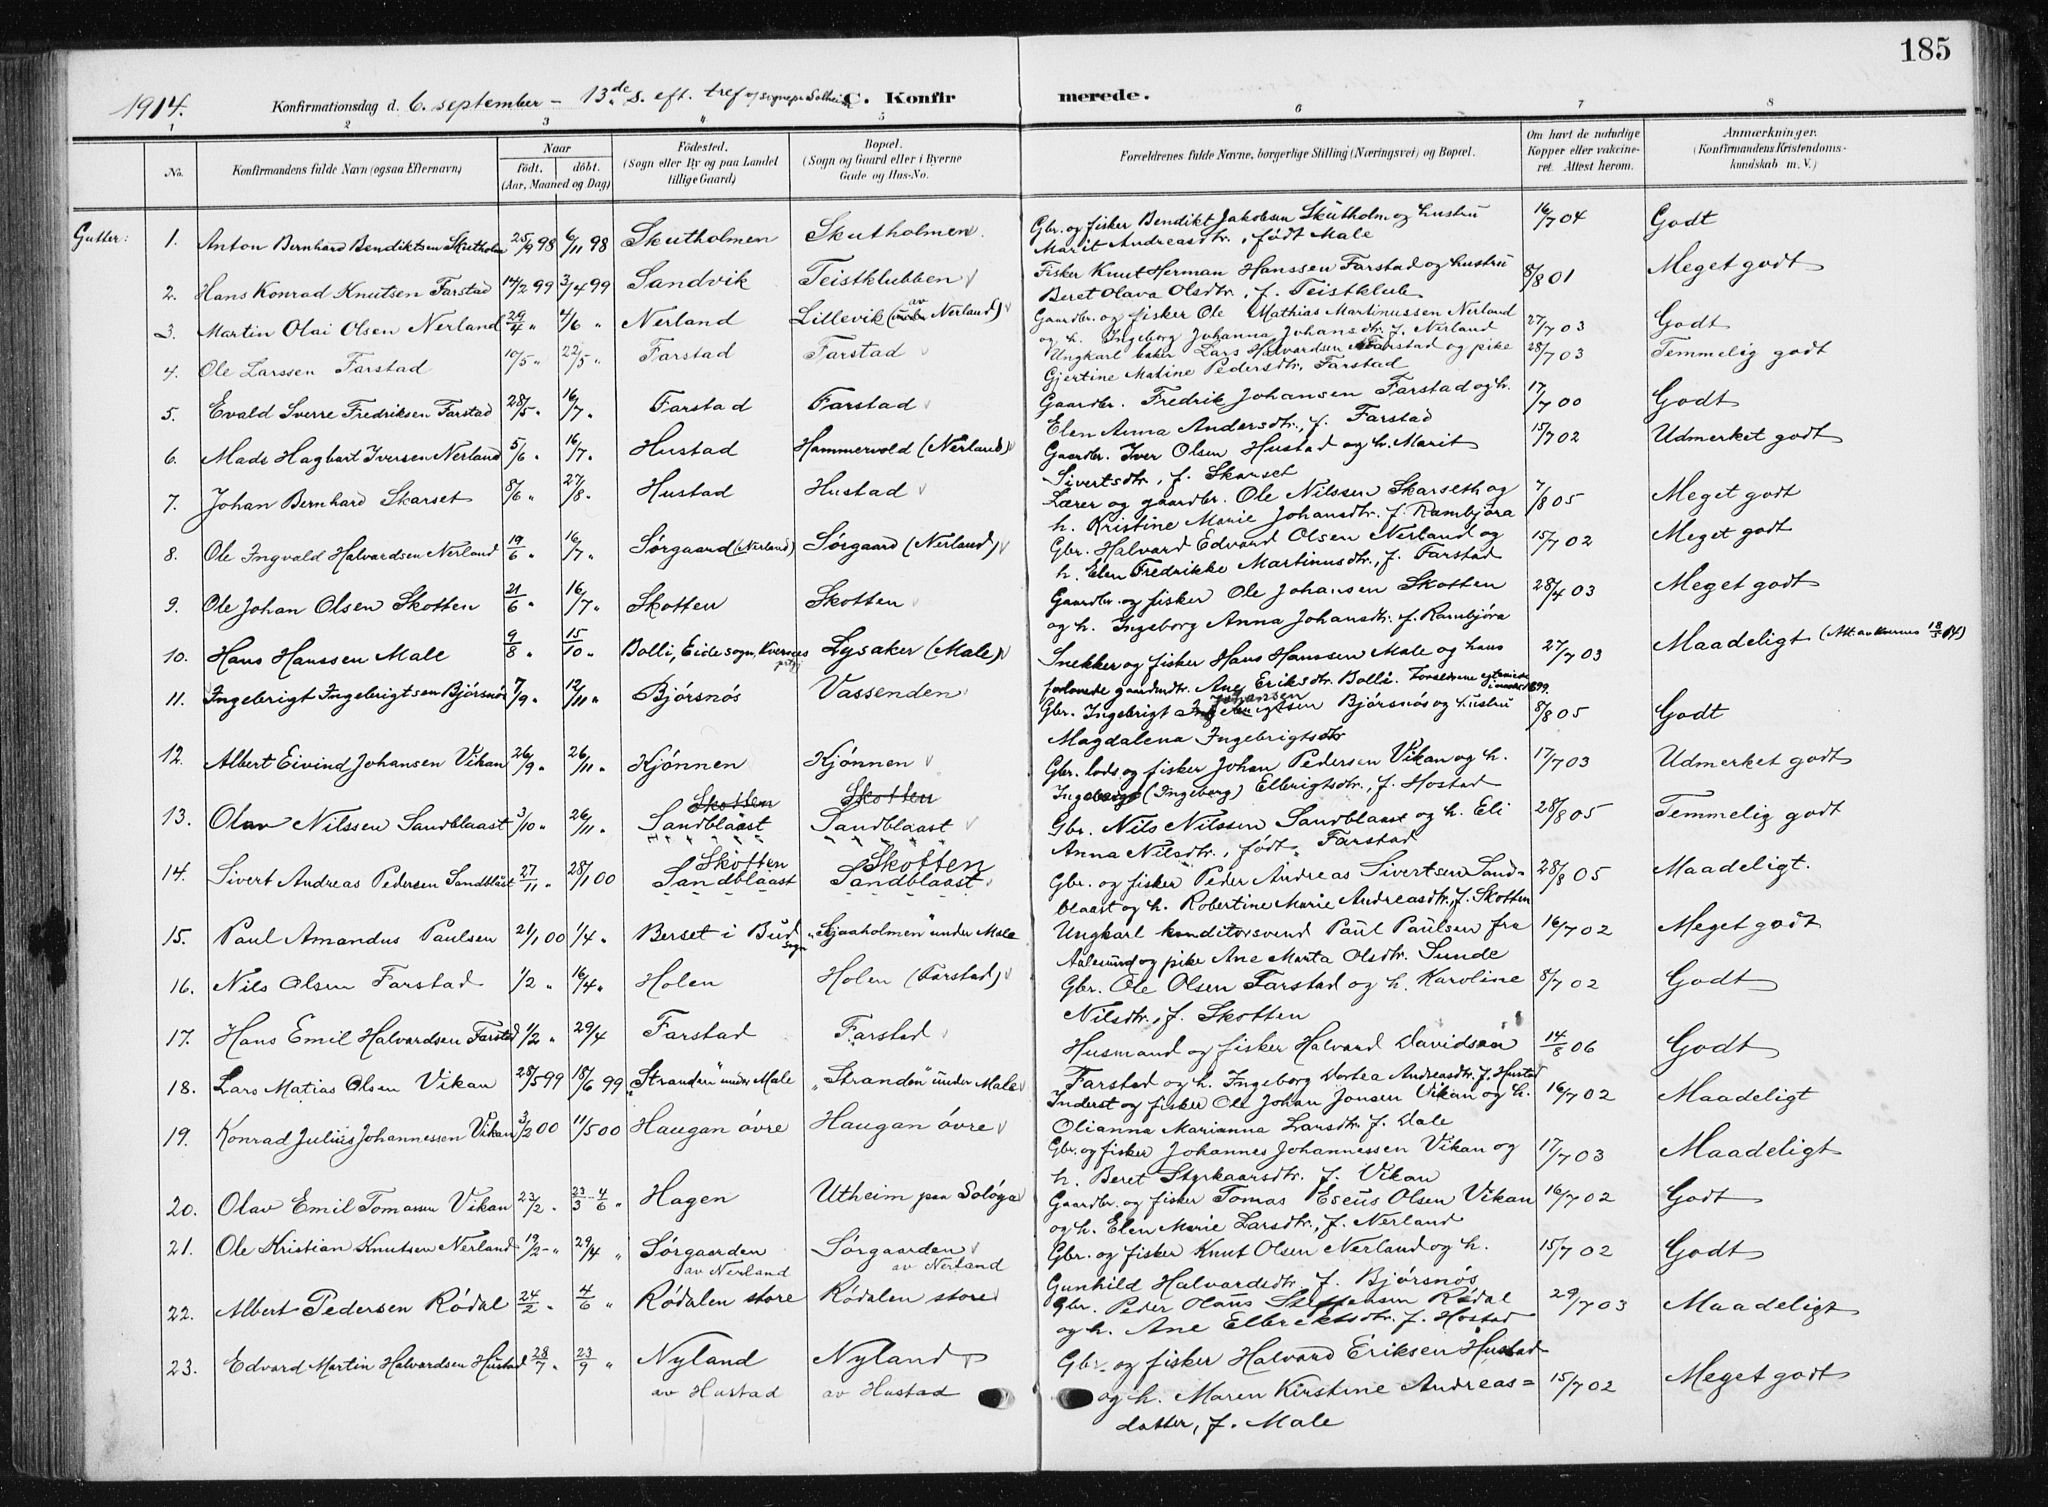 185
1914. Konfirmationsdag d. 6. september – 13de s. eft. tref. C. Konfirmerede.
1 2 3 4 5 6 7 8
No. Konfirmandens fulde Navn (ogsaa Efternavn) Naar født. døbt. (Aar, Maaned og Dag) Fødested. (Sogn eller By og paa Landet tillige Gaard) Bopæl. (Sogn og Gaard eller i Byerne Gade og Hus-No. Forældrenes fulde Navne, borgerlige Stilling (Næringsvei) og Bopæl. Om havt de naturlige Kopper eller vakcineret. Attest herom. Anmærkninger. (Konfirmandens Kristendomskundskab m. V.)
Gutter:
1. Anton Bernhard Bendiktsen Skutholm 25/9 98 6/11 98 Skutholmen Skutholmen. Gbr. og fisker Bendikt Jakobsen Skutholm og hustru 16/7 04 Godt
Marit Andreasdtr., født Male
2. Hans Konrad Knutsen Farstad 14/2 99 3/4 99 Sandvik Teistklubben Fisker Knut Herman Hanssen Farstad og hustru 8/8 01 Meget godt
Beret Olava Olsdtr., f. Teistklub
3. Martin Olai Olsen Nerland 29/4 " 4/6 " Nerland Lillevik (av Nerland) Gaardbr. og fisker Ole Mathias Martinussen Nerland 27/7 03 Godt
og h. Ingeborg Johanna Johansdtr. f. Nerland
4. Ole Larssen Farstad 10/5 " 22/5 " Farstad Farstad Ungkarl baker Lars Halvardsen Farstad og pike 28/7 03 Temmelig godt
Gjertine Matine Pedersdtr., Farstad
5. Evald Sverre Fredriksen Farstad 28/5 " 16/7 " Farstad Farstad Gaardbr. Fredrik Johansen Farstad og h. 17/7 00 Godt
Elen Anna Andersdtr., f. Farstad
6. Mads Hagbart Iversen Nerland 5/6 " 16/7 " Hustad Hammervold (Nerland) Gaardbr. Iver Olsen Hustad og h. Marit 15/7 02 Udmerket godt
Sivertsdtr., f. Skarset
7. Johan Bernhard Skarset 8/6 " 27/8 " Hustad Hustad Lærer og gaardbr. Ole Nilssen Skarseth og 7/8 05 Meget godt
h. Kristine Marie Johansdtr. f. Rambjøra
8. Ole Ingvald Halvardsen Nerland 19/6 " 16/7 " Sørgaard (Nerland) Sørgaard (Nerland) Gbr. Halvard Edvard Olsen Nerland og 15/7 02 Meget godt
h. Elen Fredrikke Martinusdtr., f. Farstad
9. Ole Johan Olsen Skotten 21/6 " 16/7 " Skotten Skotten Gaardbr. og fisker Ole Johansen Skotten 28/4 03 Meget godt
og h. Ingeborg Anna Johansdtr. f. Rambjøra
10. Hans Hanssen Male 9/8 " 15/10 " Bolli, Eide sogn, Kvernes prstgj Lysaker (Male) Snekker og fisker Hans Hanssen Male og hans 27/7 03 Maadeligt (Att. av Kvernes 18/5 14)
forlovede gaardmdtr. Ane Eriksdtr. Bolli.
11. Ingebrigt Ingebrigtsen Bjørsnøs 7/9 " 12/11 " Bjørsnøs Vassenden Gbr. Ingebrigt Johansen Bjørsnøs og hustru 8/8 05 Godt
Magdalena Ingebrigtsdtr
12. Albert Eivind Johansen Vikan 26/9 " 26/11 " Kjønnen Kjønnen Gbr. lods og fisker Johan Pedersen Vikan og h. 17/7 03 Udmerket godt
Ingebrigt (Ingeborg) Elbrigtsdtr., f. Hostad
13. Olav Nilssen Sandblaast 3/10 " 26/11 " Skotten Sandblaast Skotten Sandblaast Gbr. Nils Nilssen Sandblaast og h. Eli 28/8 05 Temmelig godt
Anna Nilsdtr., født Farstad
14. Sivert Andreas Pedersen Sandblåst 27/11 " 28/1 00 Skotten Sandblaast Skotten Sandblaast Gbr. og fisker Peder Andreas Sivertsen Sand= 28/8 05 Maadeligt.
blaast og h. Robertine Marie Andreasdtr., f. Skotten
15. Paul Amandus Paulsen 21/1 00 1/4 " Berset i Bud sogn "Sjaaholmen" under Male Ungkarl konditorsvend Paul Paulsen fra 16/7 02 Meget godt
Aalesund og pike Ane Marta Olsdtr. Sunde
16. Nils Olsen Farstad 1/2 " 16/4 " Holen Holen (Farstad) Gbr. Ole Olsen Farstad og h. Karoline 8/7 02 Godt
Nilsdtr., f. Skotten
17. Hans Emil Halvardsen Farstad 1/2 " 29/4 Farstad Farstad Husmand og fisker Halvard Davidsen 14/8 06 Godt
Farstad og h. Ingeborg Dortea Andreasdtr. f. Hustad
18. Lars Matias Olsen Vikan 28/5 99 18/6 99 "Stranden" under Male "Stranden" under Male Inderst og fisker Ole Johan Jonsen Vikan og h. 16/7 02 Maadeligt
Olianna Marianna Larsdtr. f. Dale
19. Konrad Julius Johannessen Vikan 3/2 00 11/5 00 Haugan øvre Haugan øvre Gbr. og fisker Johannes Johannessen Vikan og 17/7 03 Maadeligt
h. Beret Styrkaarsdtr. f. Vikan
20. Olav Emil Tomassen Vikan 23/2 " 23/3 – 4/6 " Hagen Utheim paa Soløya Gaardbr. og fisker Tomas Eseus Olsen Vikan 16/7 02 Godt
og h. Elen Marie Larsdtr., f. Nerland
21. Ole Kristian Knutsen Nerland 19/2 – " 29/4 " Sørgaarden av Nerland Sørgaarden av Nerland Gbr. og fisker Knut Olsen Nerland og h. 15/7 02 Godt
Gunhild Halvardsdtr. f. Bjørsnøs
22. Albert Pedersen Rødal 24/2 " 4/6 " Rødalen store Rødalen store Gbr. Peder Olaus Steffensen Rødal 29/7 03 Maadeligt
og h. Ane Elbriktsdtr. f. Hostad
23. Edvard Martin Halvardsen Hustad 28/7 " 23/9 " Nyland av Hustad Nyland av Hustad Gbr. og fisker Halvard Eriksen Hustad 15/7 02 Meget godt
og h. Maren Kirstine Andreas=
datter, f. Male